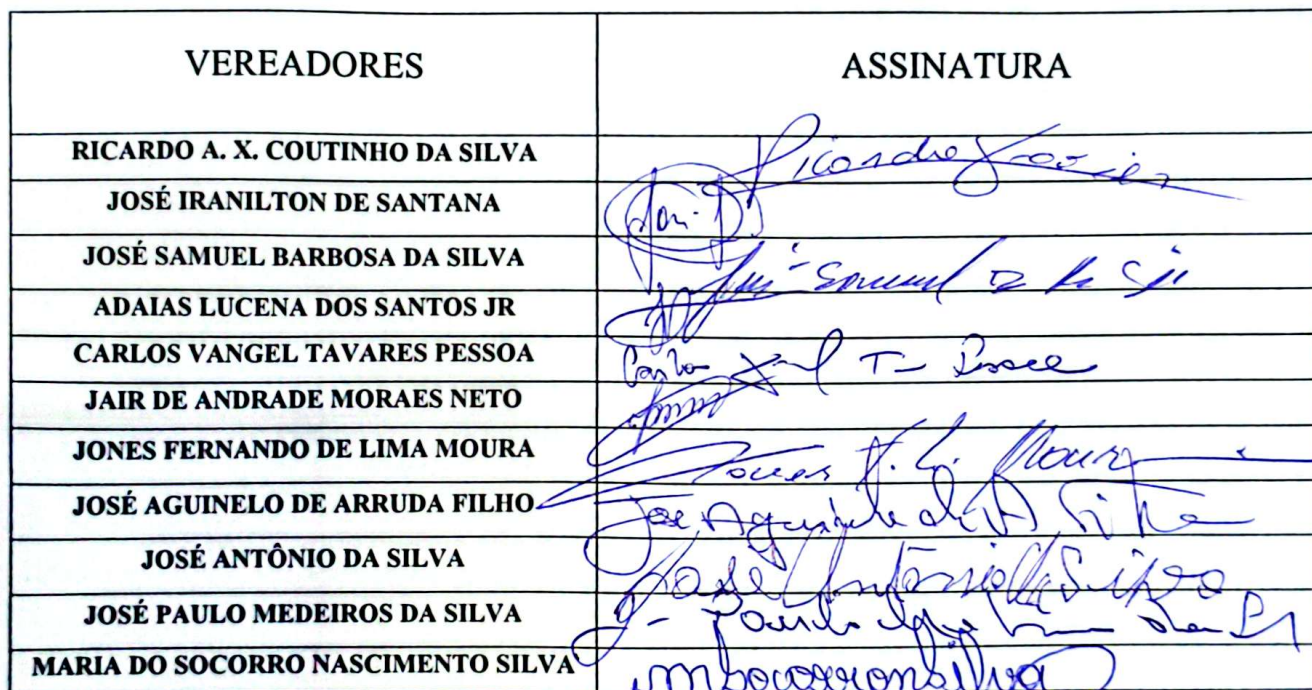 VEREADORES ASSINATURA
RICARDO A. X. COUTINHO DA SILVA Ricardo Xavier
JOSÉ IRANILTON DE SANTANA
JOSÉ SAMUEL BARBOSA DA SILVA José Samuel B da
ADAIAS LUCENA DOS SANTOS JR
CARLOS VANGEL TAVARES PESSOA Carlos T Pessoa
JAIR DE ANDRADE MORAES NETO
JONES FERNANDO DE LIMA MOURA Jones F. L. Moura
JOSÉ AGUINELO DE ARRUDA FILHO José Aguinelo de A Filho
JOSÉ ANTÔNIO DA SILVA José Antônio da Silva
JOSÉ PAULO MEDEIROS DA SILVA J. Paulo
MARIA DO SOCORRO NASCIMENTO SILVA msocorronsilva